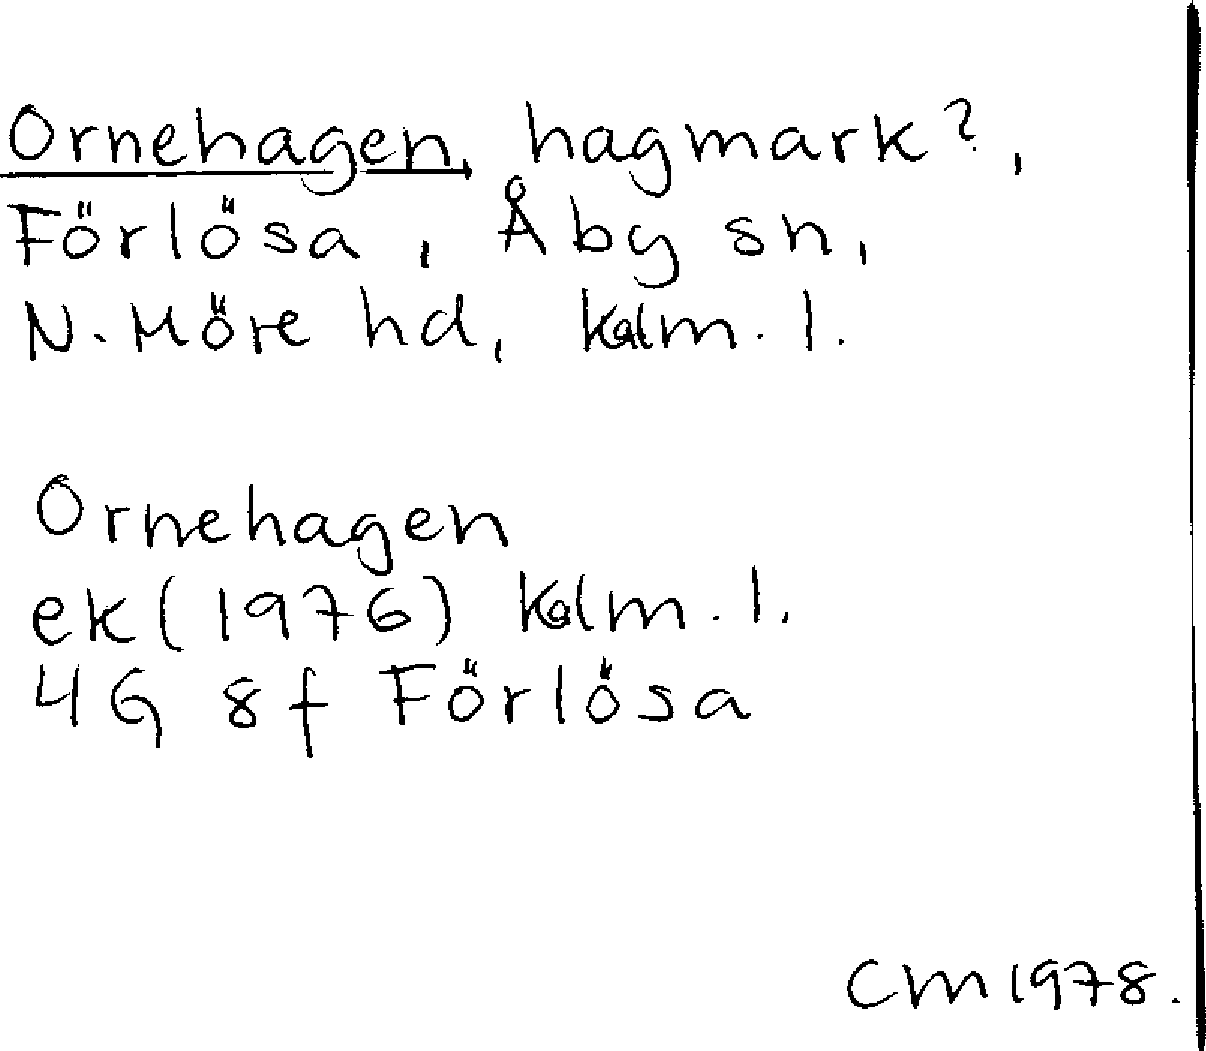 Ornehagen, hagmark?,
Förlösa, Åby sn,
N. Möre hd, Kalm. l.
Ornehagen
ek (1976) Kalm. l.
4G 8f Förlösa
CM 1978.